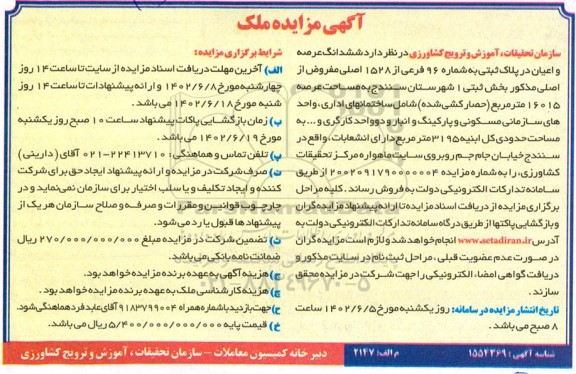 آگهی مزایده ملک
سازمان تحقیقات، آموزش و ترویج کشاورزی در نظر دارد ششدانگ عرصه
و اعیان در پلاک ثبتی به شماره ۹۶ فرعی از ۱۵۲۸ اصلی مفروض از
اصلی مذکور بخش ثبتی ۱ شهرستان سنندج به مساحت عرصه
۱۶۰۱۵ مترمربع (حصارکشی شده) شامل ساختمانهای اداری، واحد
های سازمانی مسکونی و پارکینگ و انبار و دو واحد کارگری و ... به
مساحت حدودی کل ابنیه ۳۱۹۵ متر مربع دارای انشعابات، واقع در
سنندج خیابان جام جم روبروی سایت ماهواره مرکز تحقیقات
کشاورزی، را به شماره مزایده ۲۰۰۲۰۹۱۷۹۰۰۰۰۰۰۴ از طریق
سامانه تدارکات الکترونیکی دولت به فروش رساند. کلیه مراحل
برگزاری مزایده از دریافت اسناد مزایده تا ارائه پیشنهاد مزایده گران
و بازگشایی پاکتها از طریق درگاه سامانه تدارکات الکترونیکی دولت به
آدرس www.setadiran.ir انجام خواهد شد و لازم است مزایده گران
در صورت عدم عضویت قبلی، مراحل ثبت نام در سایت مذکور و
دریافت گواهی امضاء الکترونیکی را جهت شرکت در مزایده محقق
سازند.
تاریخ انتشار مزایده در سامانه: روز یکشنبه مورخ ۱۴۰۲/۶/۵ ساعت
۸ صبح می باشد.
شرایط برگزاری مزایده:
الف) آخرین مهلت دریافت اسناد مزایده از سایت تا ساعت ۱۴ روز
چهارشنبه مورخ ۱۴۰۲/۶/۸ و ارائه پیشنهادات تا ساعت ۱۴ روز
شنبه مورخ ۱۴۰۲/۶/۱۸ می باشد.
ب) زمان بازگشایی پاکات پیشنهاد ساعت ۱۰ صبح روز یکشنبه
مورخ ۱۴۰۲/۶/۱۹ می باشد.
پ) تلفن تماس و هماهنگی: ۲۲۴۱۳۷۱۰-۰۲۱ آقای (دارینی)
ت) صرف شرکت در مزایده و ارائه پیشنهاد ایجاد حق برای شرکت
کننده و ایجاد تکلیف و یا سلب اختیار برای سازمان نمی نماید و در
چارچوب قوانین و مقررات و صرفه و صلاح سازمان هر یک از
پیشنهاد ها قبول یا رد می شود.
ث) تضمین شرکت در مزایده مبلغ ۲۷۰/۰۰۰/۰۰۰/۰۰۰ ریال
ضمانت نامه بانکی می باشد.
ج) هزینه آگهی به عهده برنده مزایده خواهد بود.
چ) هزینه کارشناسی ملک به عهده برنده مزایده خواهد بود.
ح) جهت بازدید با شماره همراه ۹۱۸۳۷۹۹۰۰۴ آقای عابد فرد هماهنگی شود.
خ) قیمت پایه ۵/۴۰۰/۰۰۰/۰۰۰/۰۰۰ ریال می باشد.
شناسه آگهی: ۱۵۵۴۳۶۹ م الف: ۲۱۴۷ دبیر خانه کمیسیون معاملات - سازمان تحقیقات، آموزش و ترویج کشاورزی